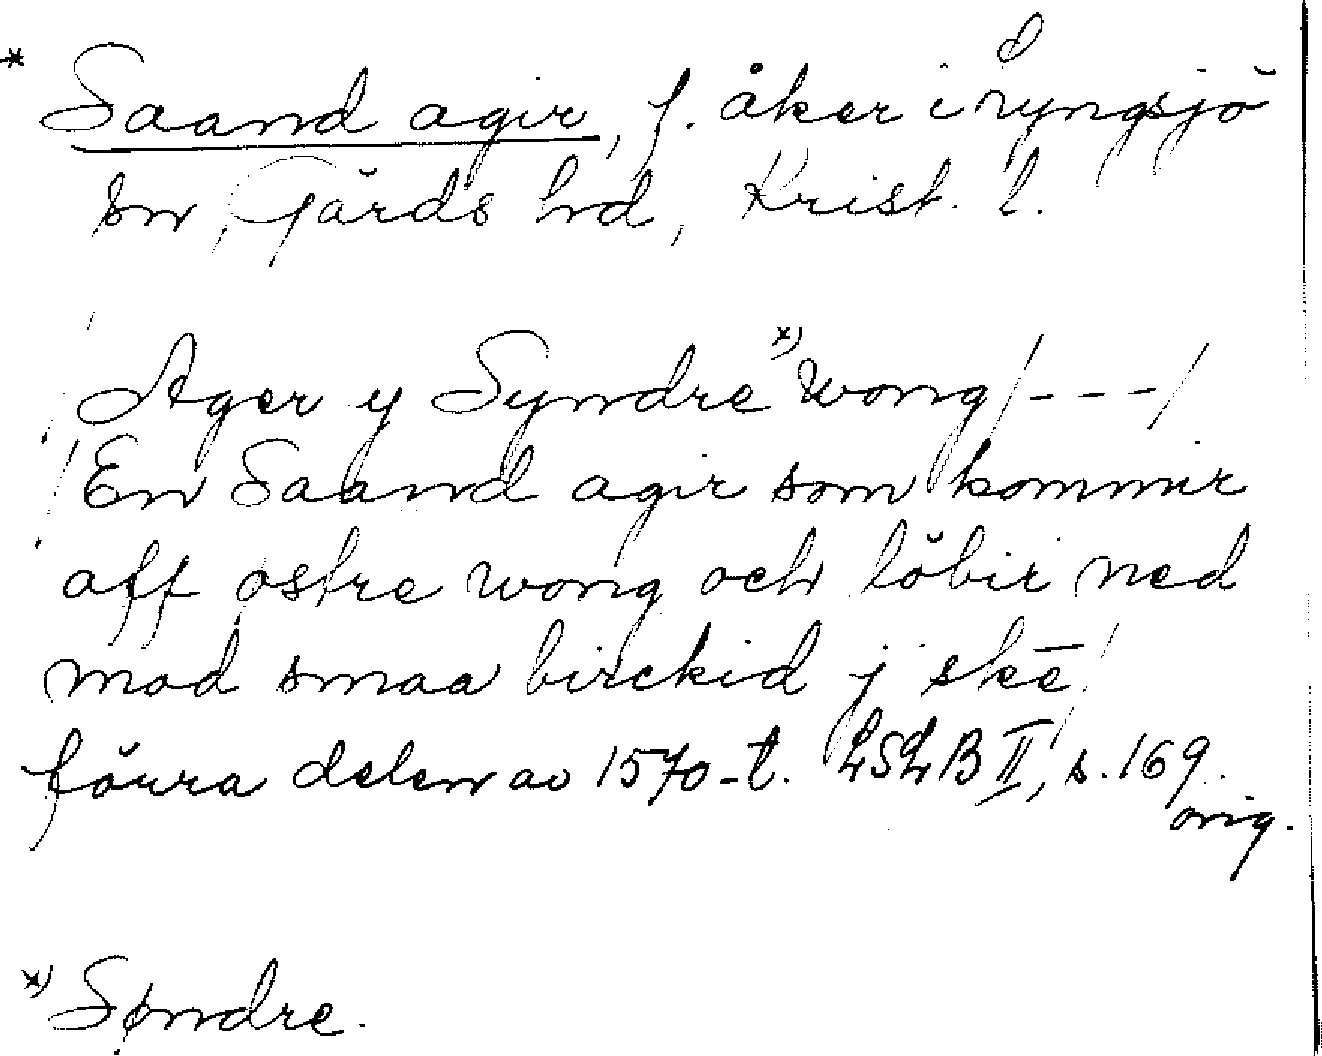 * Saand agir, f. åker i Lyngsjö
sn, Gärds hd, Krist. l.
Ager y Syndre *) wong /---/
En Saand agir som kommir
aff østre wong och löbir ned
mod smaa birckid j skē
förra delen av 1570-t. LSLB II, s. 169.
orig.
*) Søndre.